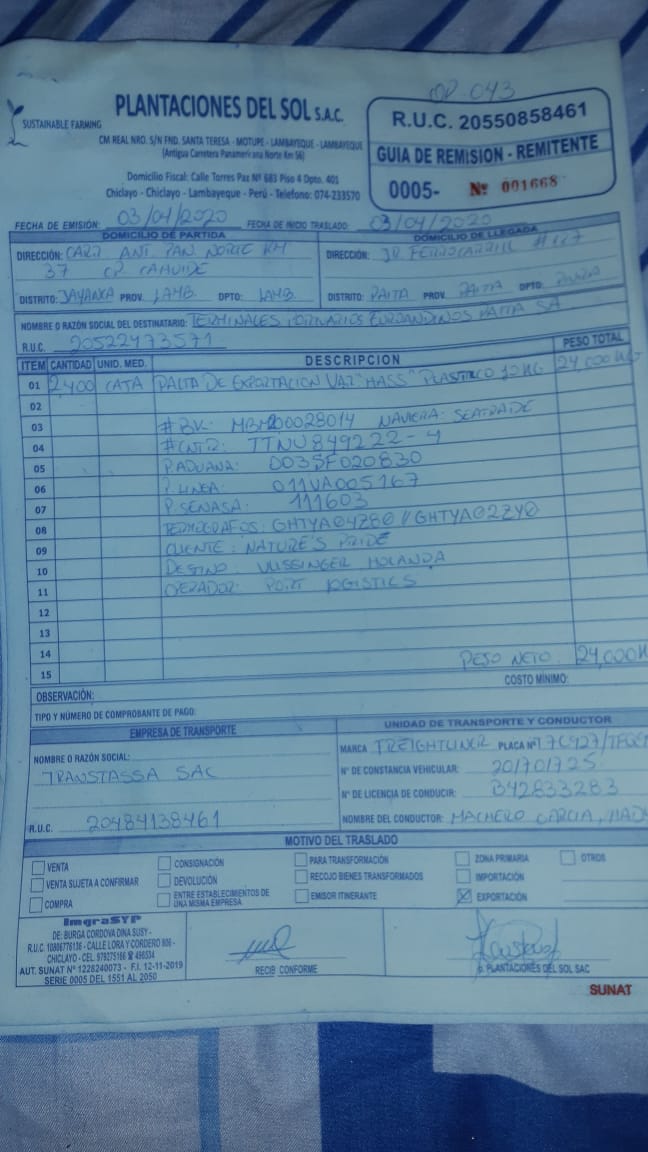 OP. 043
SUSTAINABLE FARMING
PLANTACIONES DEL SOL S.A.C.
CM REAL NRO. S/N FND. SANTA TERESA - MOTUPE - LAMBAYEQUE - LAMBAYEQUE
(Antigua Carretera Panamericana Norte Km 56)
Domicilio Fiscal: Calle Torres Paz Nº 683 Piso 4 Dpto. 401
Chiclayo - Chiclayo - Lambayeque - Perú - Telefono: 074-233570
R.U.C. 20550858461
GUIA DE REMISION - REMITENTE
0005- Nº 001668
FECHA DE EMISIÓN: 03/04/2020 FECHA DE INICIO TRASLADO 03/04/2020
DOMICILIO DE PARTIDA
DIRECCIÓN: CARR ANT. PAN. NORTE KM
37 CP. CAHUIDE
DISTRITO: JAYANCA PROV. LAMB. DPTO: LAMB.
DOMICILIO DE LLEGADA
DIRECCIÓN: JR FERROCARRIL #127
DISTRITO: PAITA PROV. PAITA DPTO: PIURA
NOMBRE O RAZÓN SOCIAL DEL DESTINATARIO: TERMINALES PORTUARIOS EUROANDINOS PAITA SA
R.U.C. 20522473571
ITEM CANTIDAD UNID. MED. DESCRIPCION PESO TOTAL
01 2,400 CAJA PALTA DE EXPORTACION VAR "HASS" PLASTICO 10 KG 24,000 KG
02
03 #BK: NAVIERA: SEATRADE
04 #CNTR: TTNU849222-4
05 P.ADUANA: 003SF020830
06 P. LINEA: 011VA005167
07 P. SENASA: 111603
08 TERMOGRAFOS: GHTYA04Z80 // GHTYA02ZY0
09 CLIENTE: NATURE'S PRIDE
10 DESTINO: VLISSINGER HOLANDA
11 OPERADOR: PORT LOGISTICS
12
13
14 PESO NETO 24,000K
15
COSTO MÍNIMO:
OBSERVACIÓN:
TIPO Y NÚMERO DE COMPROBANTE DE PAGO:
EMPRESA DE TRANSPORTE
NOMBRE O RAZÓN SOCIAL:
TRANSTASSA SAC
R.U.C. 20484138461
UNIDAD DE TRANSPORTE Y CONDUCTOR
MARCA FREIGHTLINER PLACA Nº
Nº DE CONSTANCIA VEHICULAR: 201701725
Nº DE LICENCIA DE CONDUCIR: B42833283
NOMBRE DEL CONDUCTOR: MACHERO GARCIA,
MOTIVO DEL TRASLADO
VENTA
VENTA SUJETA A CONFIRMAR
COMPRA
CONSIGNACIÓN
DEVOLUCIÓN
ENTRE ESTABLECIMIENTOS DE
UNA MISMA EMPRESA
PARA TRANSFORMACIÓN
RECOJO BIENES TRANSFORMADOS
EMISOR ITINERANTE
ZONA PRIMARIA
IMPORTACIÓN
EXPORTACIÓN
OTROS
ImgraSYP
DE: BURGA CORDOVA DINA SUSY -
R.U.C. 10806776136 - CALLE LORA Y CORDERO 806 -
CHICLAYO - CEL. 979275166 ☎ 496534
AUT. SUNAT Nº 1228240073 - F.I. 12-11-2019
SERIE 0005 DEL 1551 AL 2050
RECIBI CONFORME
p. PLANTACIONES DEL SOL SAC
SUNAT